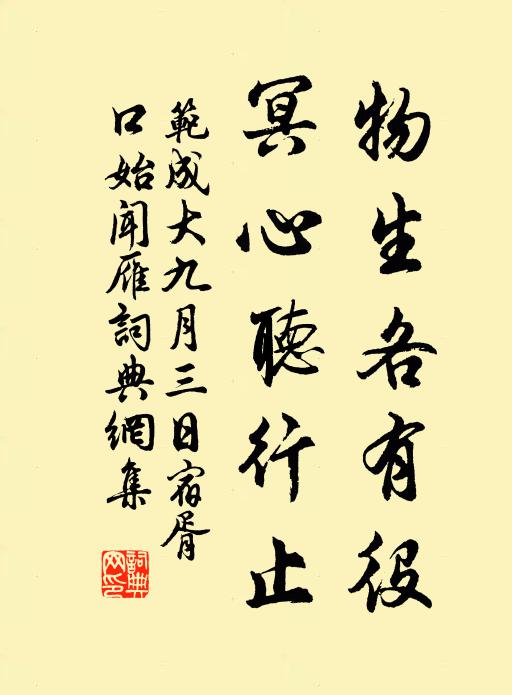 物生各有役
冥心聽行止
範成大九月三日宿胥
口始聞雁詞典網集
詞典
网印